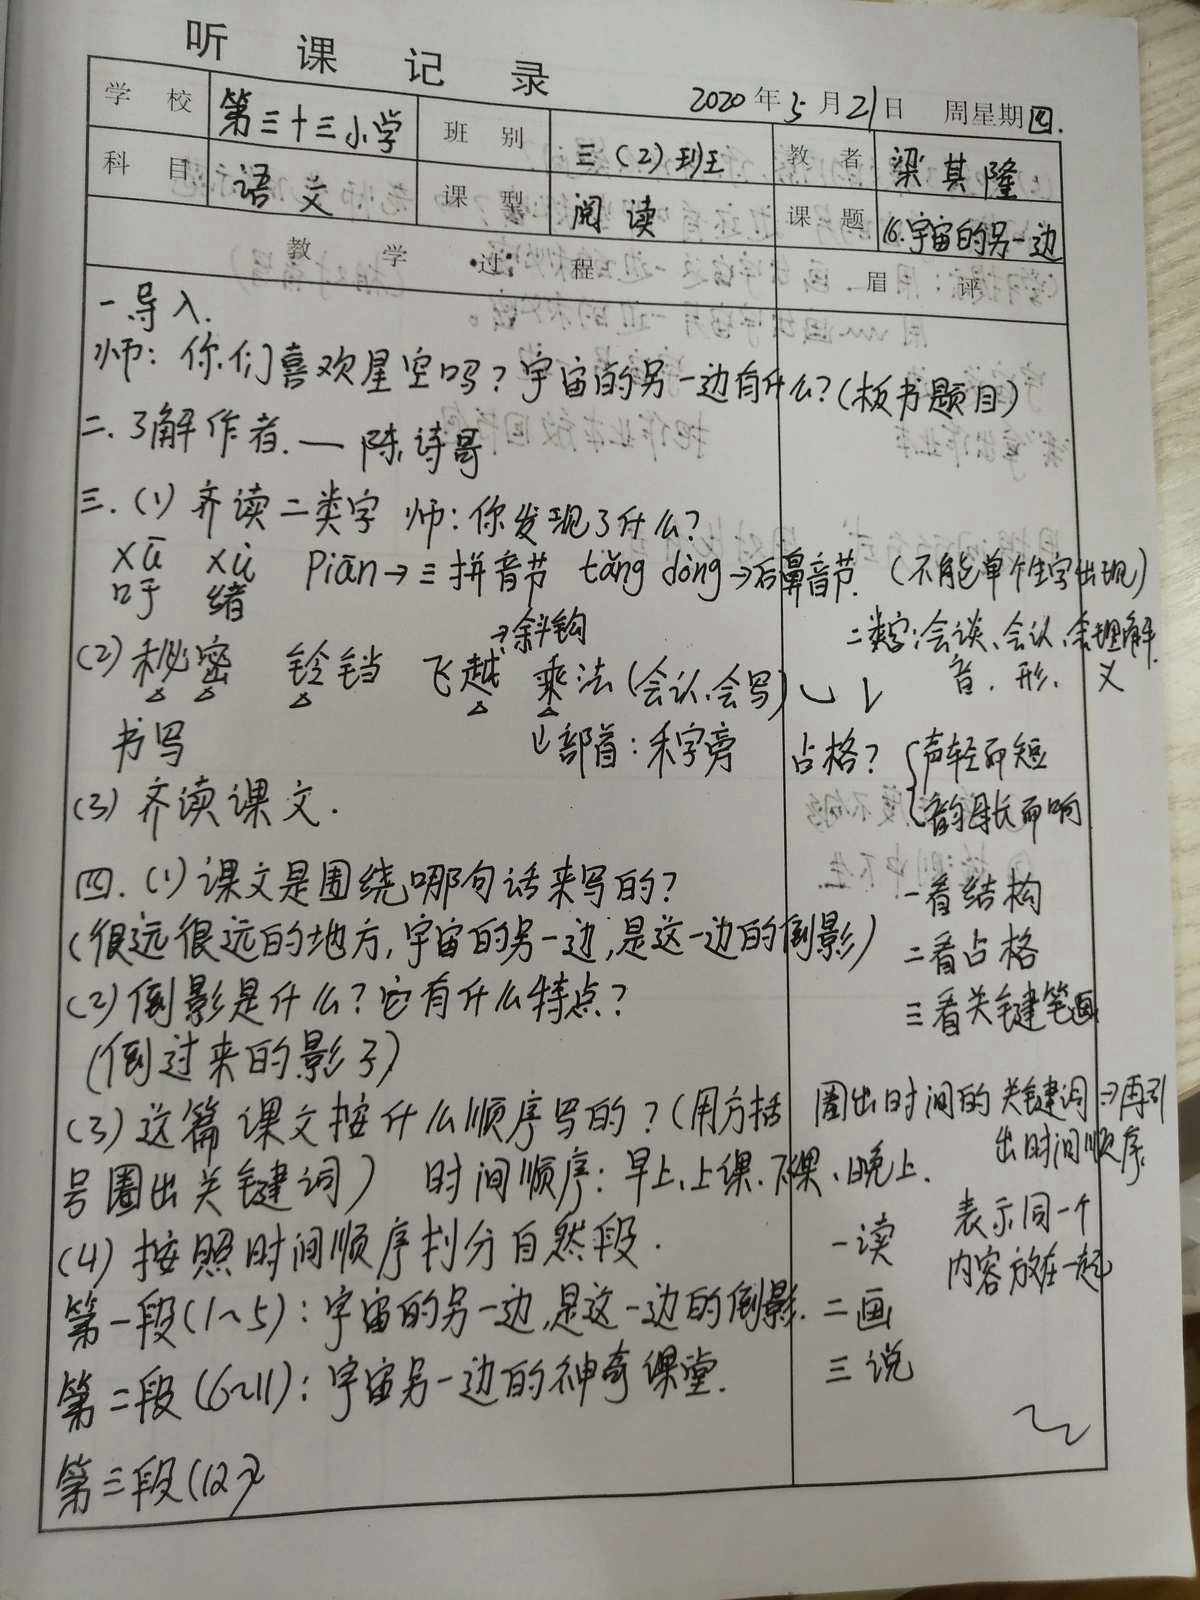 听课记录
2020年5月21日 周星期四.
学校 第三十三小学 班别 三(2)班 教者 梁其隆
科目 语文 课型 阅读 课题 16.宇宙的另一边
教学过程 眉评
一导入.
师：你们喜欢星空吗？宇宙的另一边有什么？(板书题目)
二.了解作者.—陈诗哥
三.(1)齐读二类字 师：你发现了什么？
xū xù piān→三拼音节 tāng dòng→后鼻音节. (不能单个生字出现)
吁 绪
→斜钩
二类字:会读、会认、会理解.
音.形.义
(2)秘密 铃铛 飞越 乘法(会认.会写)
书写 部首：禾字旁 占格？
声轻而短
韵母长而响
(3)齐读课文.
四.(1)课文是围绕哪句话来写的？
一看结构
(很远很远的地方,宇宙的另一边,是这一边的倒影)
二看占格
(2)倒影是什么？它有什么特点？
三看关键笔画
(倒过来的影子)
(3)这篇课文按什么顺序写的？(用方括
圈出时间的关键词→再引
出时间顺序
号圈出关键词) 时间顺序：早上、上课.下课、晚上.
表示同一个
内容放在一起
(4)按照时间顺序划分自然段.
一读
第一段(1~5)：宇宙的另一边,是这一边的倒影.
二画
第二段(6~11)：宇宙另一边的神奇课堂.
三说
第三段(12~